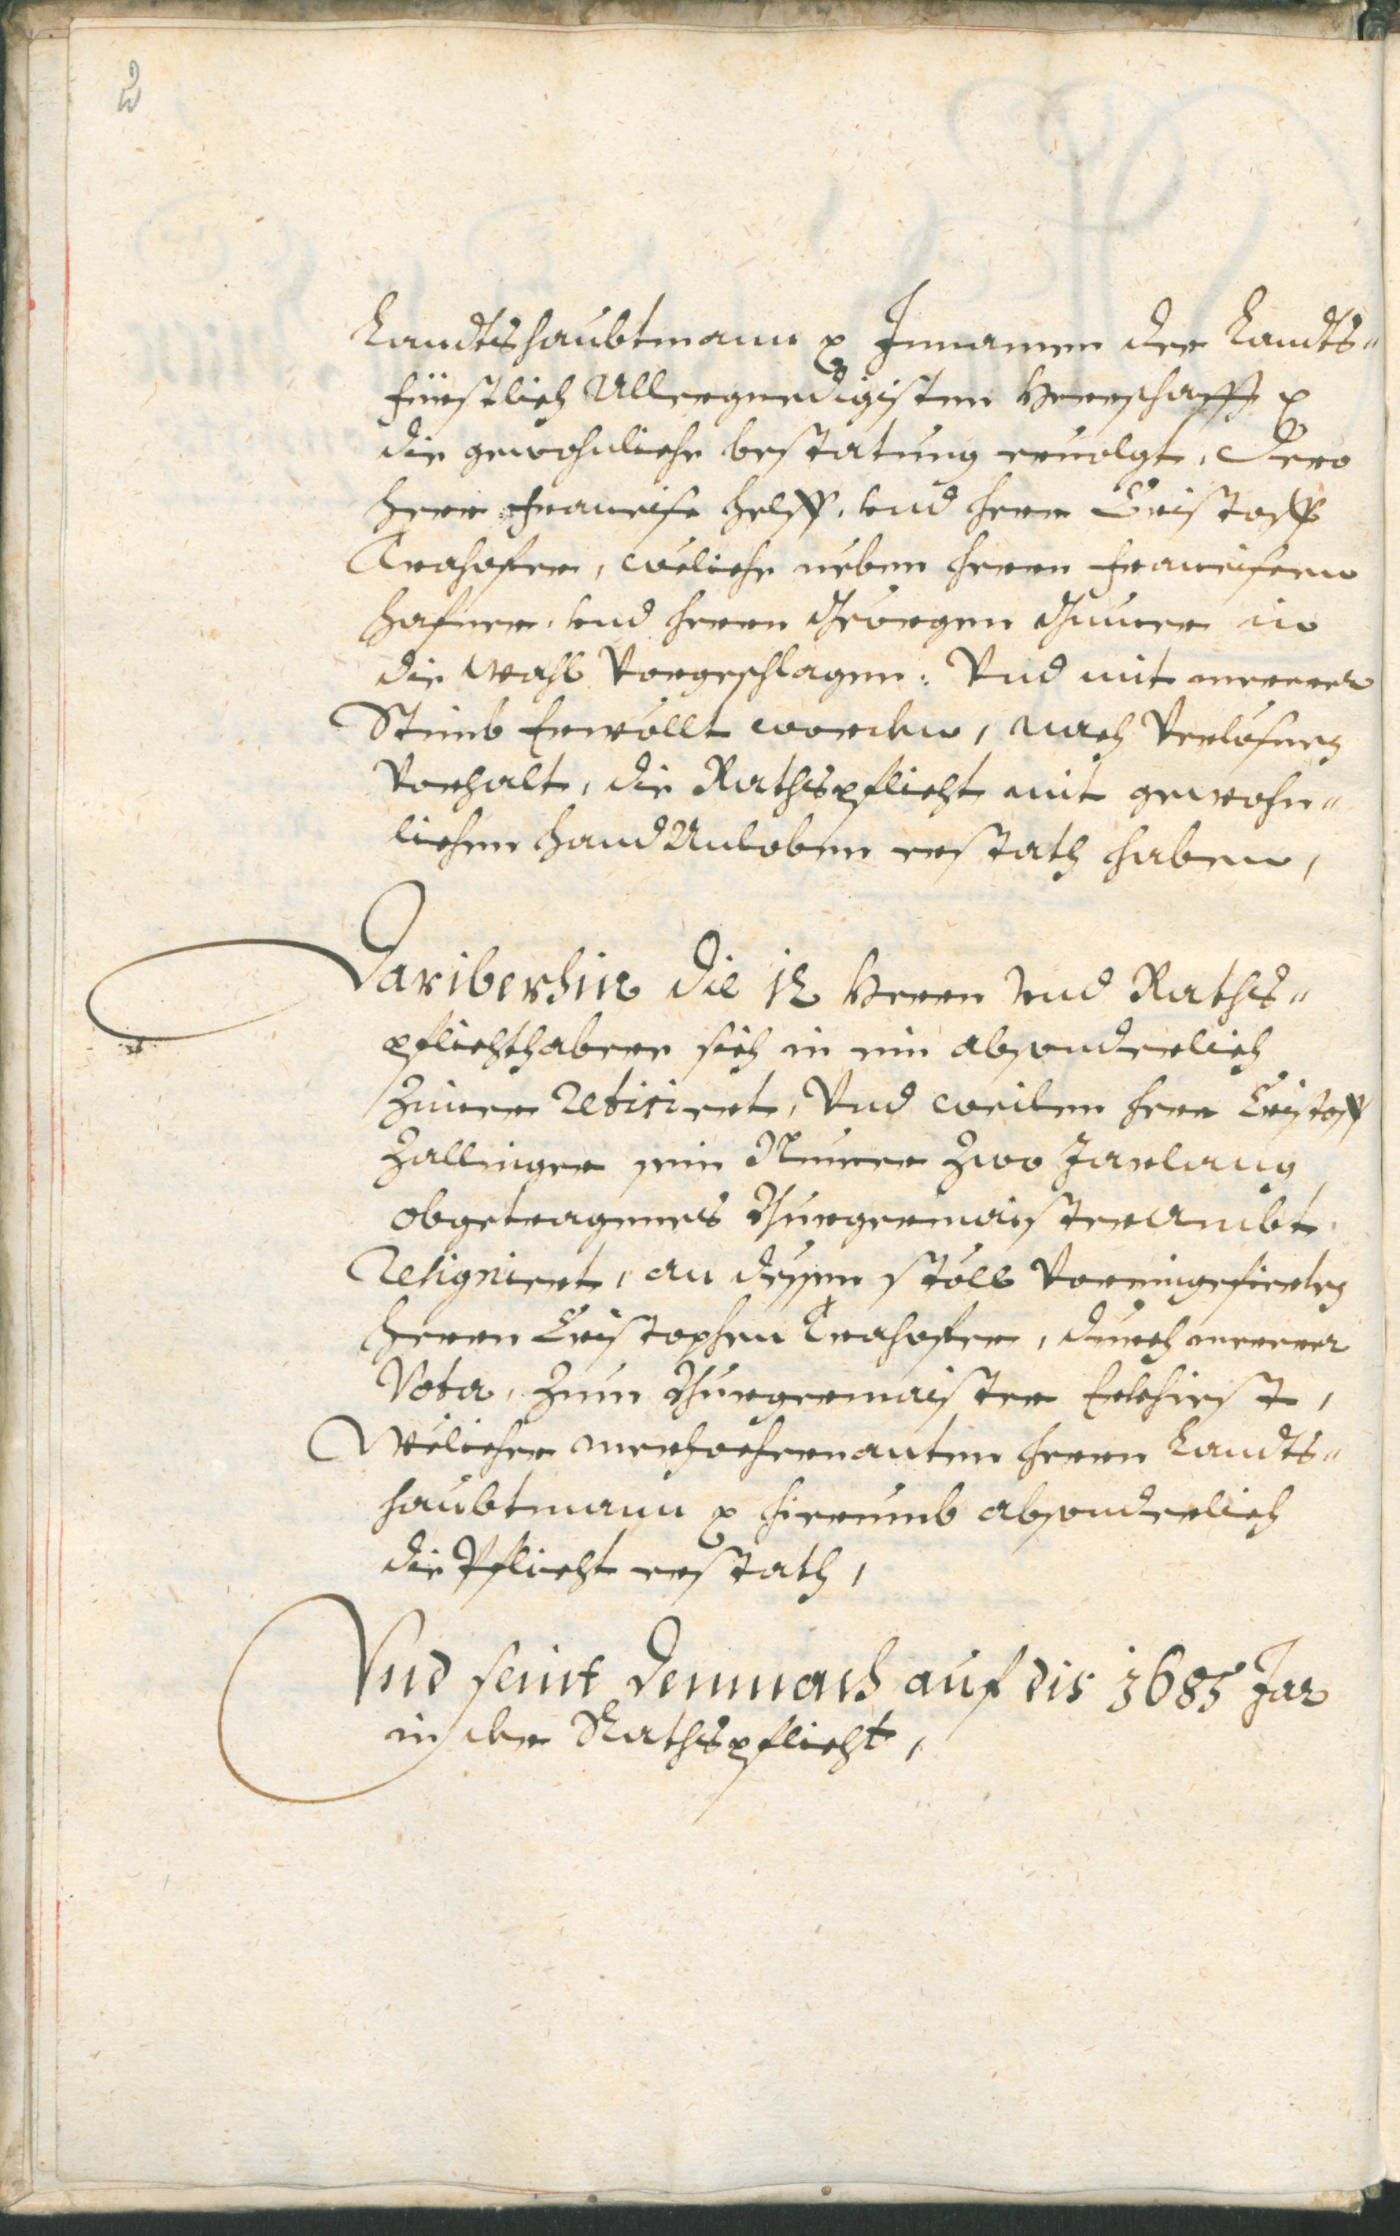 2
Landtshaubtmann ꝛc Innamen der Landts-
fürstlich Allergnedigisten Herrschafft ꝛc
die gewohnliche bestatung ervolgt, Dero
Herr Francisc und Herr Cristoff
Trahofer, weliche neben Herrn
Hafner, und Herrn Georgen in
die Wahl Vorgeschlagen: Und mit merrer
Stimb Erwöllt worden, nach Verlösnen
Vorhalt, die Rathspflicht mit gewohn-
lichen Hand Anloben erstath haben,
Dariberhin die 12 Herrn Und Raths-
pflichthaber sich in ein absonderlich
Zimer retiriert, Und weilen Herr Cristoff
Zallinger sein Nunmer Zwo Jarlang
obgetragenes Burgermaisterambt
Resigniert, an dessen stöll Voreingefierten
Herrn Cristophen Trahofer, durch merrer
Vota, Zum Burgermaister Erkhiest,
Welicher Herrn Landts-
haubtmann ꝛc hierumb absonderlich
die Pflicht erstath,
Und seint demnach auf dis 1685 Jar
in der Rathspflicht,